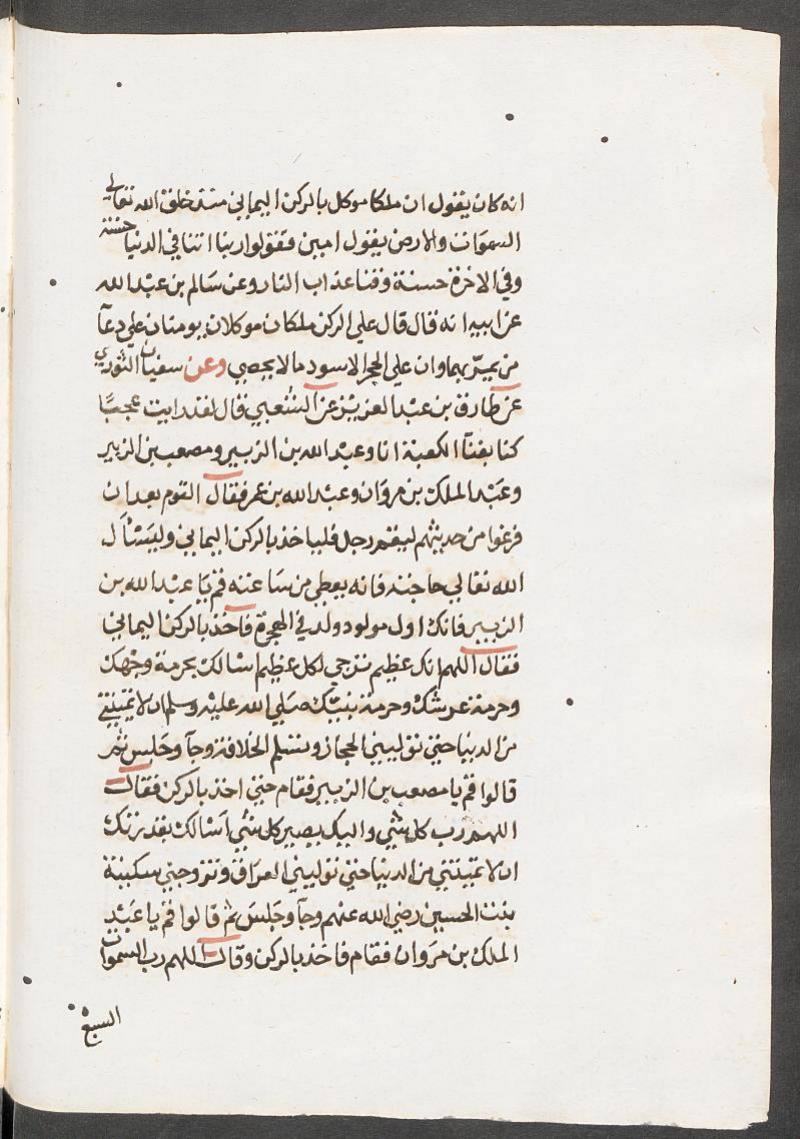 انه كان يقول ان ملكا موكل بالركن اليماني منذ خلق الله تعالي
السموات والارض يقول امين فقولوا ربنا اتنا في الدنيا حسنة
وفي الاخرة حسنة وقنا عذاب النار وعن سالم بن عبد الله
عن ابيه انه قال قال علي الركن ملكان موكلان يومنان علي دعآ
من يمرّ بهما وان علي الحجر الاسود مالا يحصي وعن سفيان الثوري
عن طارق بن عبد العزيز عن الشعبي قال لقد رايت عجبًا
كنا بفنآ الكعبة انا وعبد الله بن الزبير ومصعب بن الزبير
وعبد الملك بن مروان وعبد الله بن عمر فقال القوم بعد ان
فرغوا من حديثهم ليقم رجل فلياخذ بالركن اليماني وليسأل
الله تعالي حاجته فانه يعطي من ساعته قم يا عبد الله بن
الزبير فانك اول مولود ولد في الهجرة فاخذ بالركن اليماني
فقال اللهم انك عظيم ترجي لكل عظيم اسالك بحرمة وجهك
وحرمة عرشك وحرمة نبيك صلي الله عليه وسلم ان لا تميتني
من الدنيا حتي توليني الحجاز ويسلم الخلافة وجآ وجلس ثم
قالوا قم يا مصعب بن الزبير فقام حتي اخذ بالركن فقال
اللهم رب كل شي واليك يصير كل شي اسالك بقدرتك
ان لا تميتني من الدنيا حتي توليني العراق وتزوجني سكينة
بنت الحسين رضي الله عنهم وجآ وجلس ثم قالوا قم يا عبد
الملك بن مروان فقام فاخذ بالركن وقال اللهم رب السموات
السبع